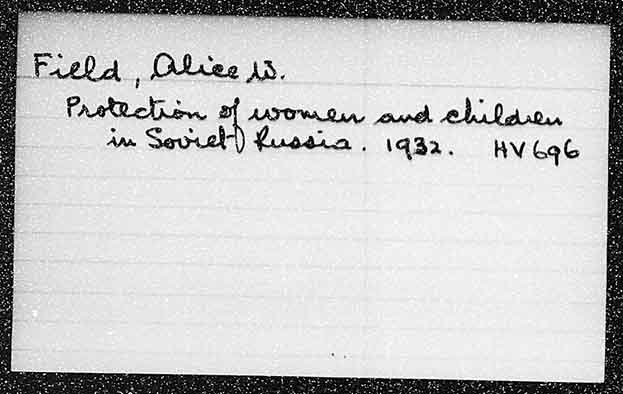 Field, Alice W.
Protection of women and children
in Soviet Russia. 1932. HV696